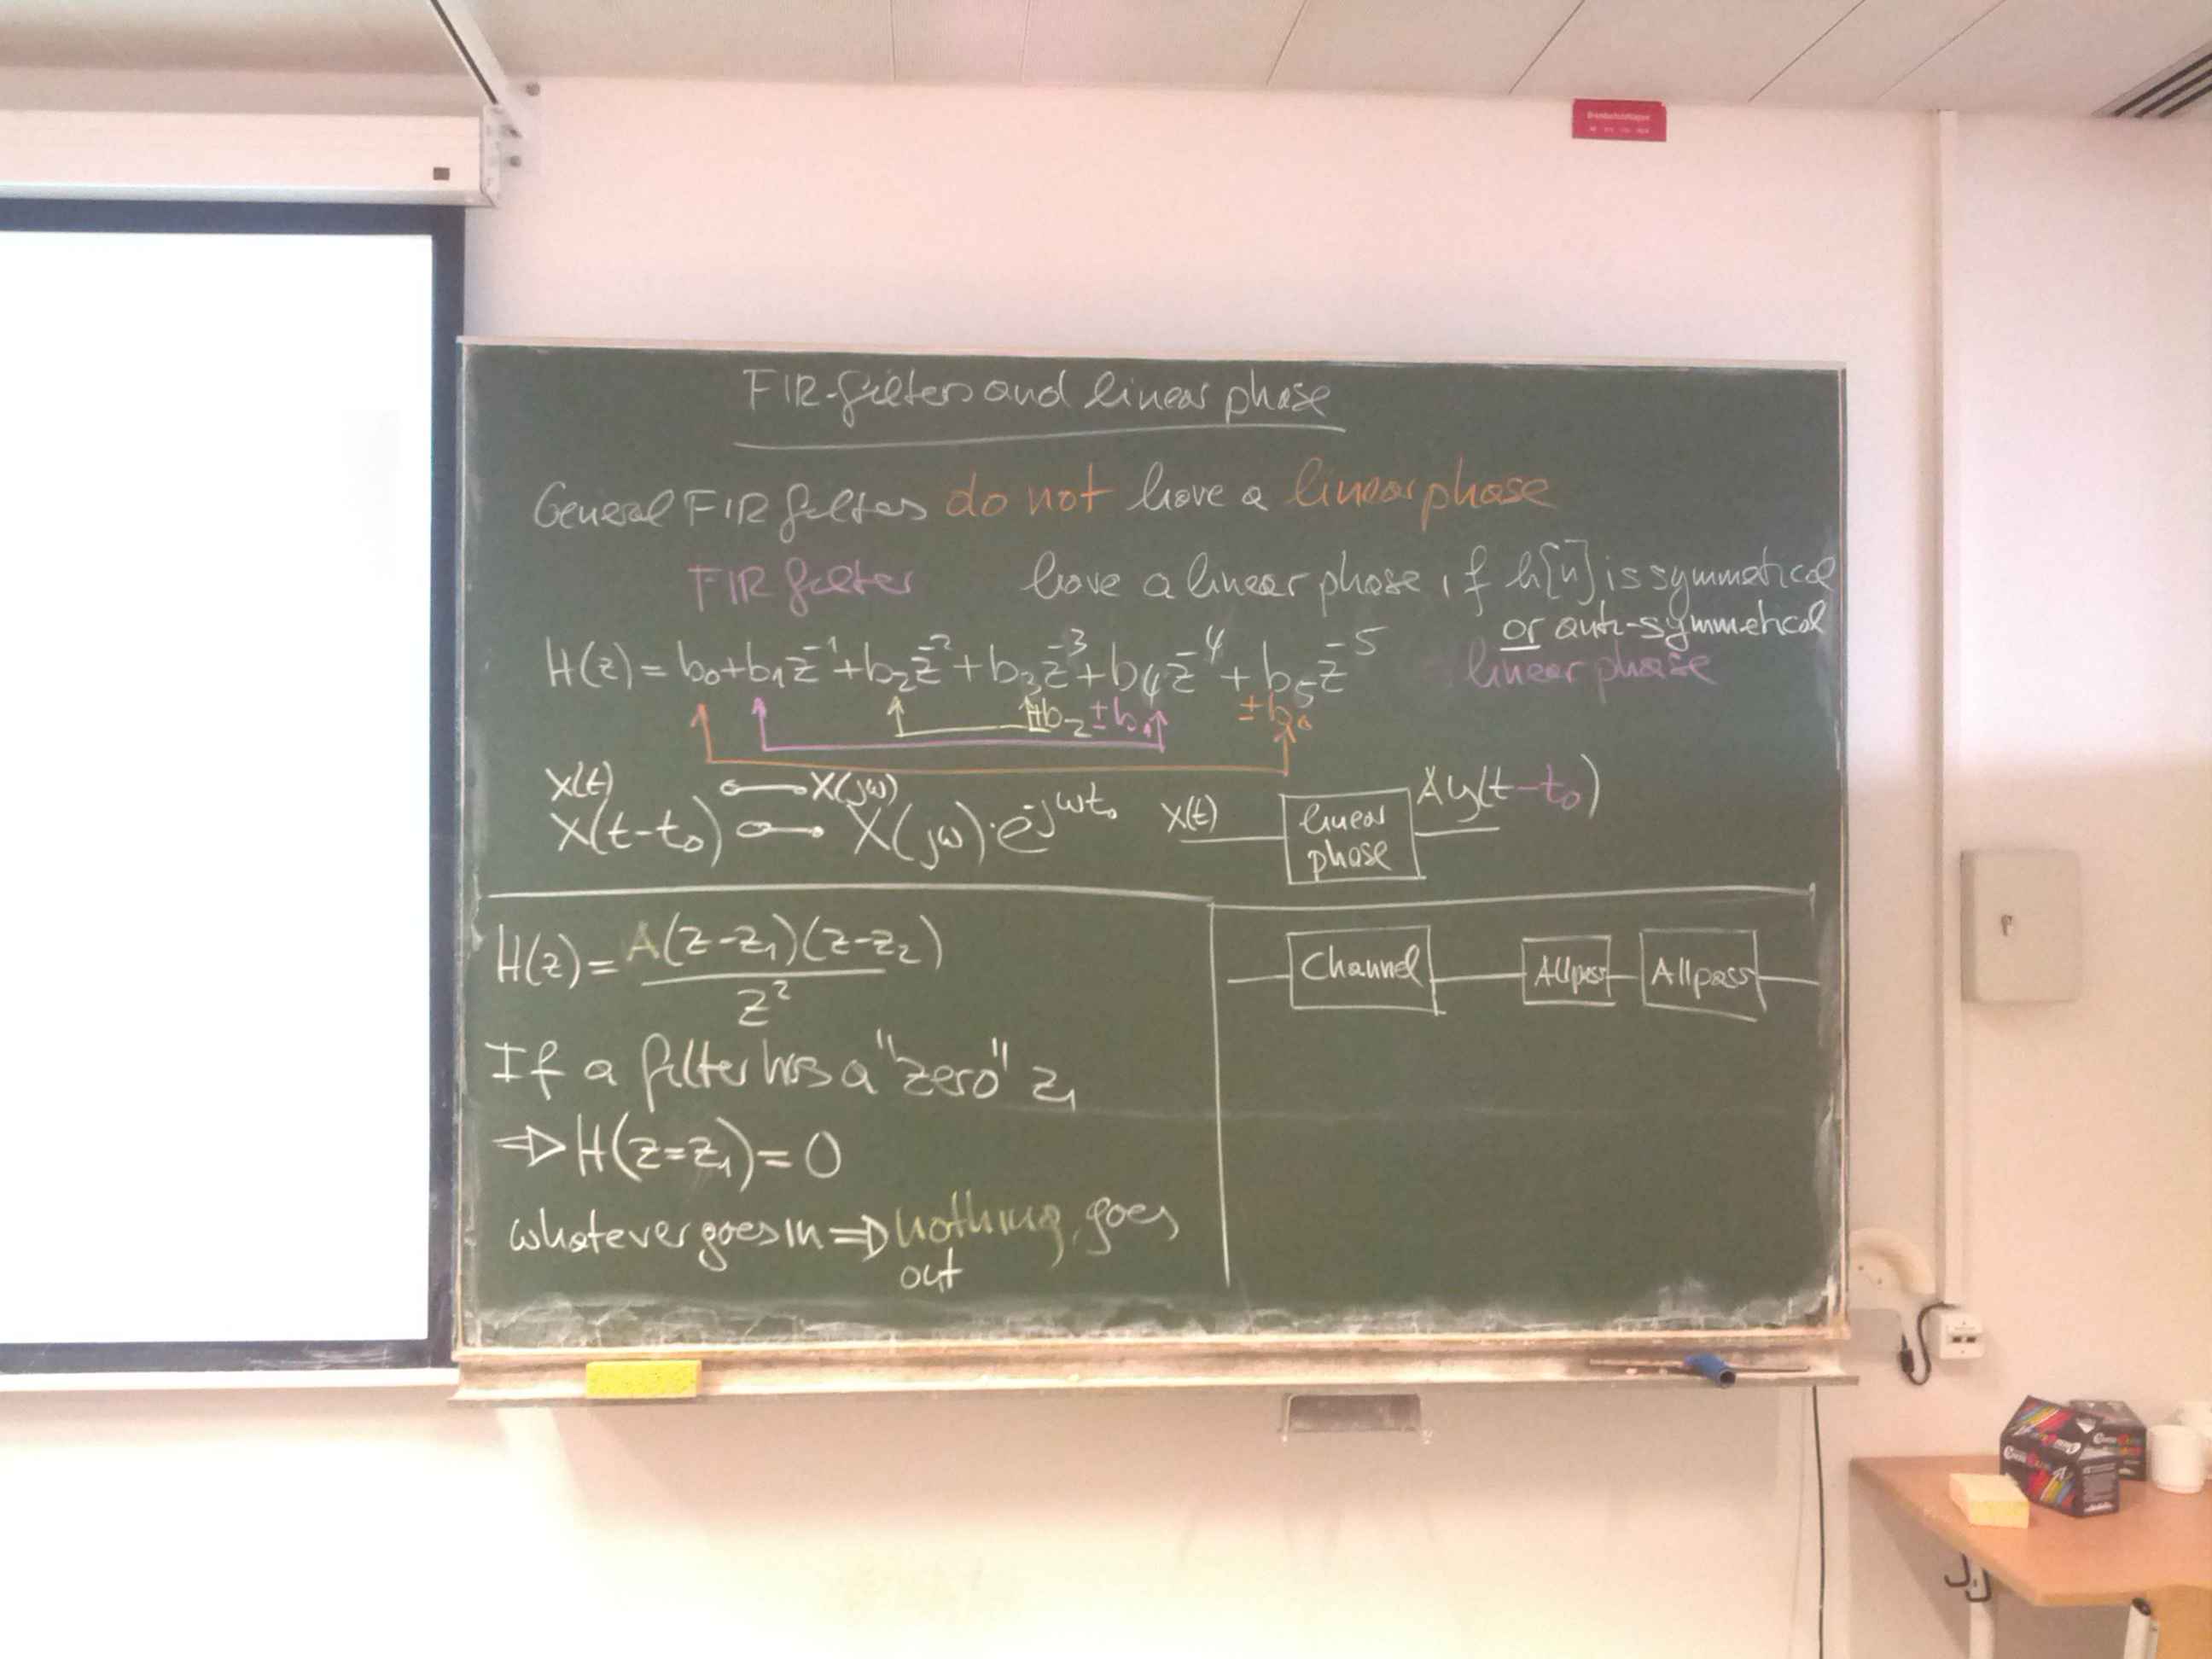 FIR-filters and linear phase
General FIR filters do not have a linear phase
FIR filter have a linear phase if h[n] is symmetical
or anti-symmetical
H(z) = b₀+b₁z⁻¹+b₂z⁻²+b₃z⁻³+b₄z⁻⁴+b₅z⁻⁵ linear phase
±b₂ ±b₁ ±b₀
x(t) X(jω)
x(t-t₀) X(jω)·e^-jωt₀
x(t) linear phase Ay(t-t₀)
H(z) = A(z-z₁)(z-z₂) / z²
If a filter has a "zero" z₁
⇒ H(z=z₁) = 0
whatever goes in ⇒ nothing goes
out
Channel Allpass Allpass